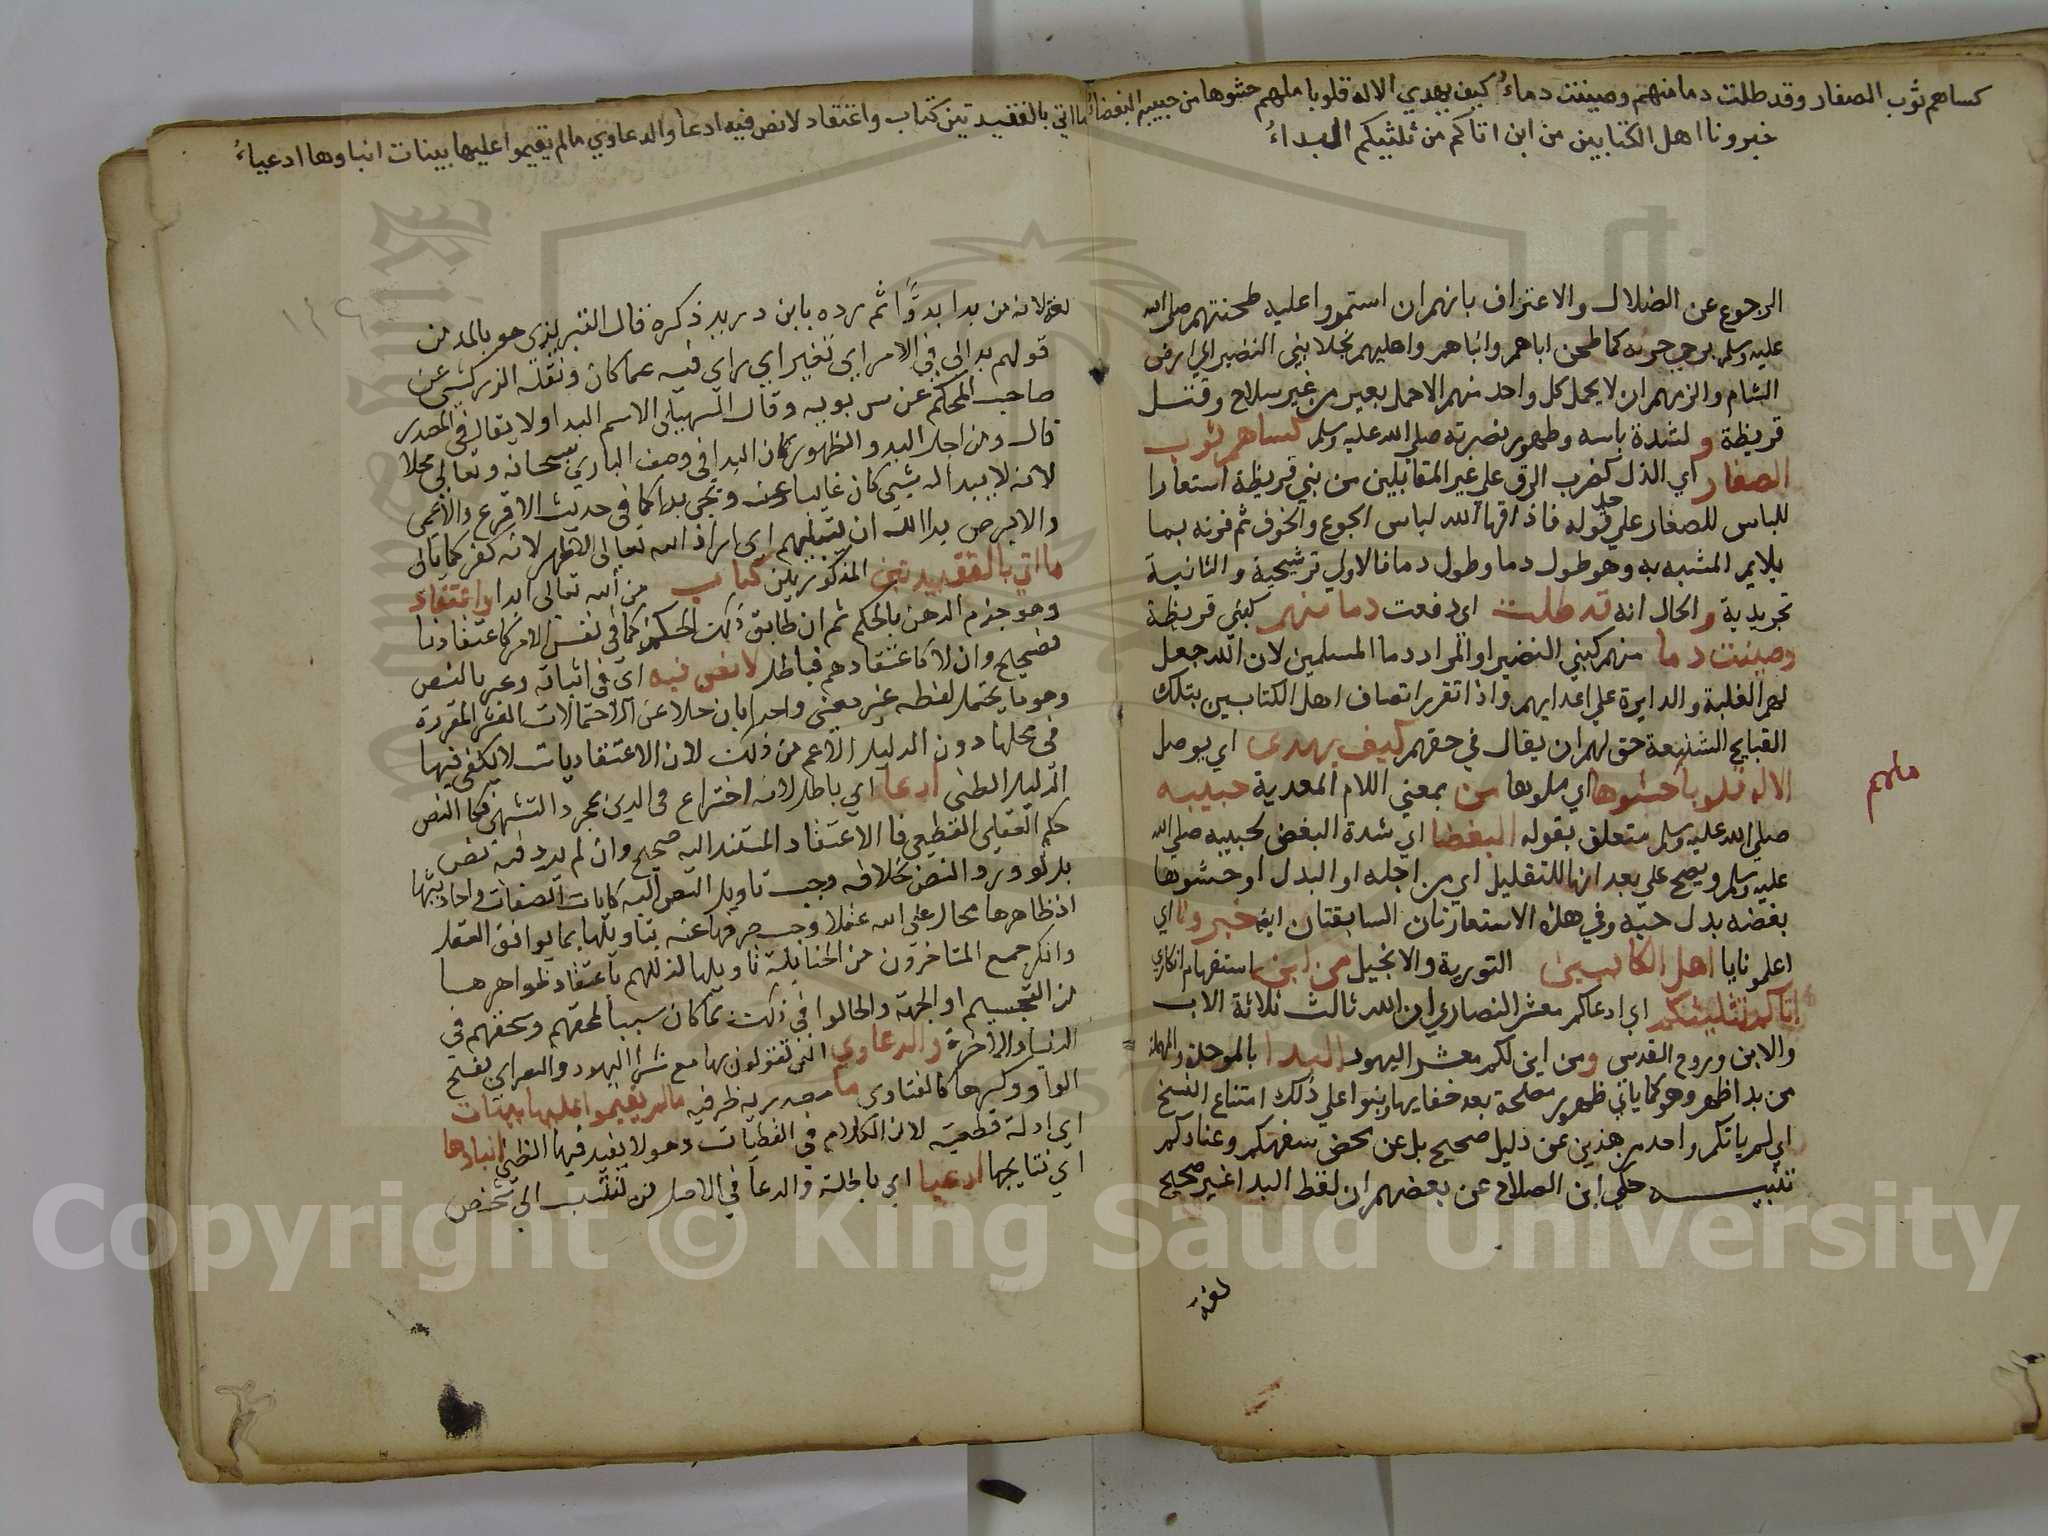 كساهم ثوب الصغار وقد طلت دما منهم وصينت دماءُ كيف يهدي الاله قلوبا ملهم حشوها من حبيبه البغضاءُ
خبرونا اهل الكتابين من اين اتاكم من تثليثكم البداءُ
الرجوع عن الضلال والاعتراف بانهم ان استمروا عليه طحنتهم صلى الله
عليه وسلم برحي حربه كما طحن اباهم واباهم واهليهم بجلا بني النضير الي ارض
الشام والزمهم ان لا يحمل كل واحد منهم الا حمل بعير من غير سلاح وقتل
قريظة ولشدة باسه وظهور نصرته صلي الله عليه وسلم كساهم ثوب
الصغار اي الذل كضرب الرق علي غير المقاتلين من بني قريظة استعارا
للباس للصغار علي حد قوله فاذاقها الله لباس الجوع والخوف ثم قرنه بما
يلايم المشبه به وهو طول دما وطول دما فالاولي ترشيحية والثانية
تجريدية والحال انه قد طلت اي دفعت دما منهم كبني قريظة
وصينت دما منهم كبني النضير او المراد دما المسلمين لان الله جعل
لهم الغلبة والدايرة علي اعدايهم واذا تقرر اتصاف اهل الكتابين بتلك
القبايح الشنيعة حق لهم ان يقال في حقهم كيف يهدي اي يوصل
الاله قلوبا حشوها اي ملوها من بمعني اللام المعدية حبيبه
ملهم
صلي الله عليه وسلم متعلق بقوله البغضا اي شدة البغض لحبيبه صلي الله
عليه وسلم ويصح علي بعد انها للتعليل اي من اجله او البدل او حشوها
بغضه بدل حبه وفي هذه الاستعارتان السابقتان ايضا خبرونا اي
اعلمونا يا اهل الكتابين التورية والانجيل من اين استفهام انكاري
اتاكم تثليثكم اي ادعاكم معشر النصاري ان الله ثالث ثلاثة الاب
والابن وروح القدس ومن اين لكم معشر اليهود البدا بالموحدة والمهملة
من بدا ظهر وهو كما ياتي ظهور مصلحة بعد خفايها وبنوا علي ذلك امتناع النسخ
اي لم ياتكم واحد من هذين عن دليل صحيح بل عن محض سفهكم وعنادكم
تنبيه حكي ابن الصلاح عن بعضهم ان لفظ البدا غير صحيح
لغة
ما اتي بالعقيدتين كتاب واعتقاد لا نص فيه ادعا والدعاوي مالم يقيموا عليها بينات ابناوها ادعياءُ
لغة لانه من بدا بدوًا ثم رده بابن دريد ذكره قال التبريزي هو بالمد من
قولهم بدا لي في الامر اي تغير اي راي فيه عما كان ونقله الزركشي عن
صاحب المحكم عن سيبويه وقال السهيلي الاسم البدا ولا يقال في المصدر
قال ومن اجل البدو الظهور كان البدا في وصف الباري سبحانه وتعالي محلا
لانه لا يبدا له شيء كان غايبا عنه ويجي بدا كما في حديث الاقرع والاعمي
والابرص بدا الله ان يبتليهم اي اراد الله تعالي لا ظهر لانه كفر كما ياتي
ما اتي بالعقيدتين المذكورتين كتاب من الله تعالي ابدا واعتقاد
وهو جزم الذهن بالحكم ثم ان طابق ذلك الحكم كما في نفس الامر كاعتقادنا
فصحيح وان لا كاعتقادهم فباطل لا نص فيه اي في اثباته وعبر بالنص
وهو ما يحتمل لفظه غير معني واحد بان خلا عن الاحتمالات العشر المقررة
في محلها دون الدليل الاعم من ذلك لان الاعتقاديات لا يكفي فيها
الدليل الظني ادعا اي باطل لانه اختراع في الدين بمجرد التشهي فكا النص
حكم العقلي القطعي فالاعتقاد المستند اليه صحيح وان لم يرد فيه نص
بل لو ورد النص بخلافه وجب تاويل النص اليه كايات الصفات واحاديثها
اذ ظاهرها محال علي الله عقلا وجب صرفها عنه بتاويلها بما يوافق العقل
وانكر جمع المتاخرون من الحنابلة تاويلها لذللهم باعتقاد ظواهرها
من التجسيم او الجهة واطالوا في ذلك بما كان سببا لمحقهم وسحقهم في
الدنيا والاخرة والدعاوي التي تقولون بها معشر اليهود والنصراي بفتح
الواو وكسرها كالفتاوي ما مصدرية ظرفية مالم يقيموا عليها بينات
اي ادلة قطعية لان الكلام في القطعيات وهو لا يفيد فيها الظني ابناوها
اي نتايجها ادعيا اي باطلة والدعا في الاصل من ينتسب الي شخص